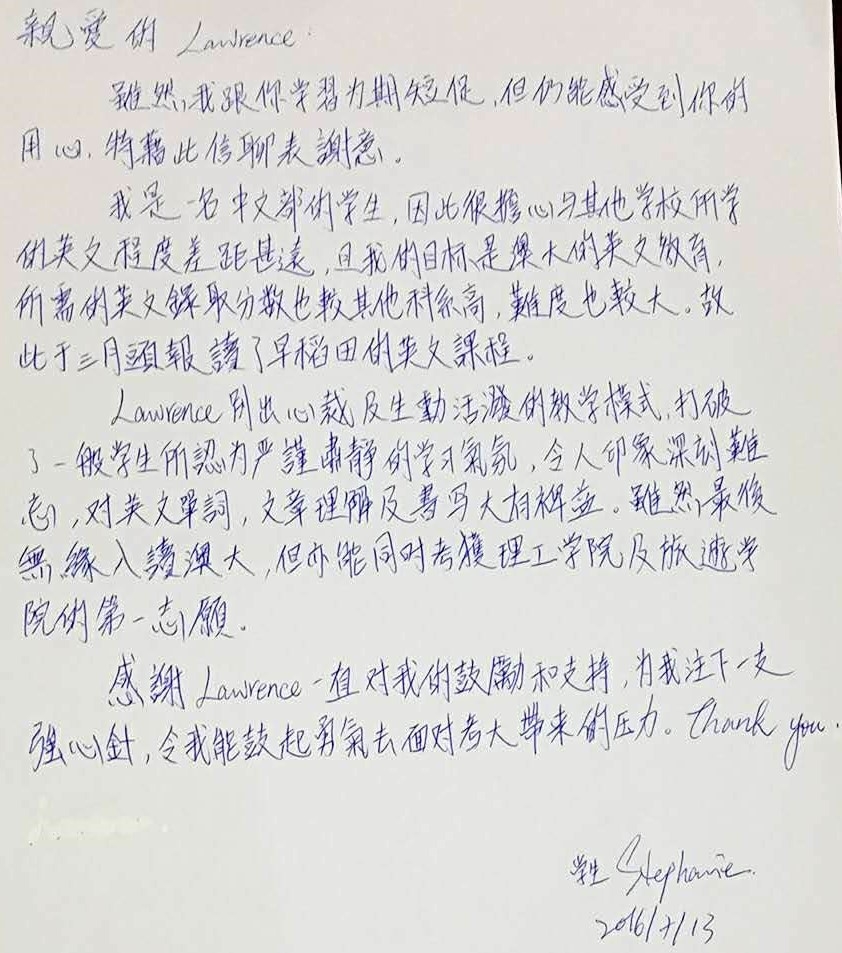 親愛的 Lawrence:
雖然,我跟你学習为期短促,但仍能感受到你的
用心,特藉此信聊表謝意。
我是一名中文部的学生,因此很擔心与其他学校所学
的英文程度差距甚遠,且我的目标是澳大的英文教育,
所需的英文錄取分數也較其他科系高,難度也較大。故
此于三月頭報讀了早稻田的英文課程。
Lawrence 別出心裁及生動活潑的教学模式,打破
了一般学生所認为严謹肅靜的学习氣氛,令人印象深刻難
忘,对英文單詞,文章理解及書写大有裨益。雖然,最後
無緣入讀澳大,但亦能同时考獲理工学院及旅遊学
院的第一志願。
感謝 Lawrence 一直对我的鼓勵和支持,为我注下一支
強心針,令我能鼓起勇氣去面对考大帶来的压力。Thank you.
学生 Stephanie.
2016/ /13